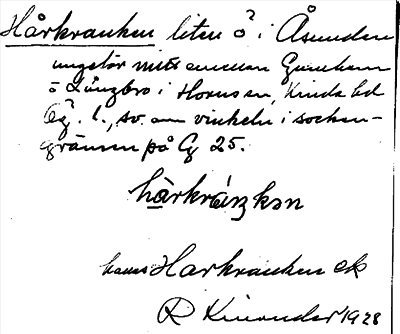 Hårkranken liten ö i Åsunden
ungefär mitt emellan Gunnhem
o Långbro i Hornsn, Kinda hd
Ög. l., sv. om vinkeln i socken-
gränsen på Gg 25.
hàrkráŋkən
Harkranken ck
R Kinander 1928